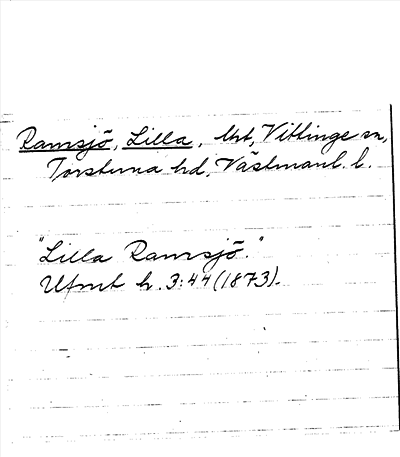 Ramsjö, Lilla, lht, Vittinge sn,
Torstuna hd, Västmanl. l.
"Lilla Ramsjö."
Ufmt h. 3:44 (1873).